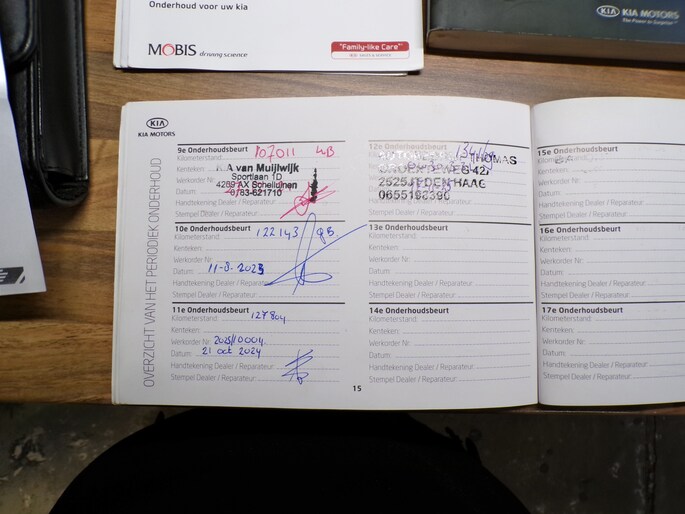 Onderhoud voor uw kia
MOBIS driving science
"Family-like Care"
KIA KIA MOTORS
The Power to Surprise
KIA
KIA MOTORS
OVERZICHT VAN HET PERIODIEK ONDERHOUD
9e Onderhoudsbeurt
Kilometerstand: 107011
Kenteken:
A van Muijlwijk
Sportlaan 1D
Werkorder Nr
4269 AX Schelluinen
Datum
0183-621710
Handtekening Dealer
Stempel Dealer / Reparateur:
10e Onderhoudsbeurt
Kilometerstand: 122143
Kenteken:
Werkorder Nr:
Datum: 11-8-2023
Handtekening Dealer / Reparateur:
Stempel Dealer / Reparateur:
11e Onderhoudsbeurt
Kilometerstand: 127804
Kenteken:
Werkorder Nr:
Datum: 21 oct 2024
Handtekening Dealer / Reparateur:
Stempel Dealer / Reparateur:
12e Onderhoudsbeurt
Kilometerstand:
THOMAS
Kenteken:
Werkorder Nr
DEN HAAG
Datum
Handtekening
Stempel Dealer / Reparateur:
13e Onderhoudsbeurt
Kilometerstand:
Kenteken:
Werkorder Nr:
Datum:
Handtekening Dealer / Reparateur:
Stempel Dealer / Reparateur:
14e Onderhoudsbeurt
Kilometerstand:
Kenteken:
Werkorder Nr:
Datum:
Handtekening Dealer / Reparateur:
Stempel Dealer / Reparateur:
15e Onderhoudsbeurt
Kilometerstand:
Kenteken:
Werkorder Nr:
Datum:
Handtekening Dealer / Reparateur:
Stempel Dealer / Reparateur:
16e Onderhoudsbeurt
Kilometerstand:
Kenteken:
Werkorder Nr:
Datum:
Handtekening Dealer / Reparateur:
Stempel Dealer / Reparateur:
17e Onderhoudsbeurt
Kilometerstand:
Kenteken:
Werkorder Nr:
Datum:
Handtekening Dealer / Reparateur:
Stempel Dealer / Reparateur:
15